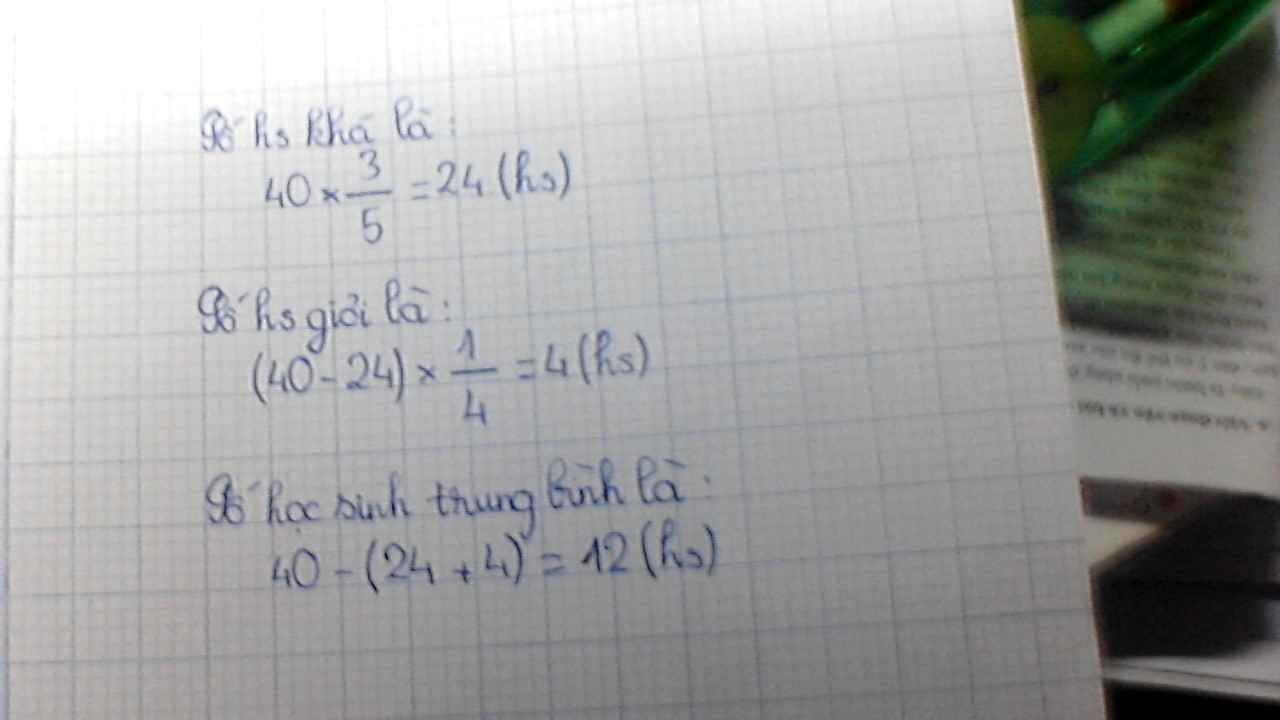 Số hs khá là:
40 × 3/5 = 24 (hs)
Số hs giỏi là:
(40 - 24) × 1/4 = 4 (hs)
Số học sinh trung bình là:
40 - (24 + 4) = 12 (hs)